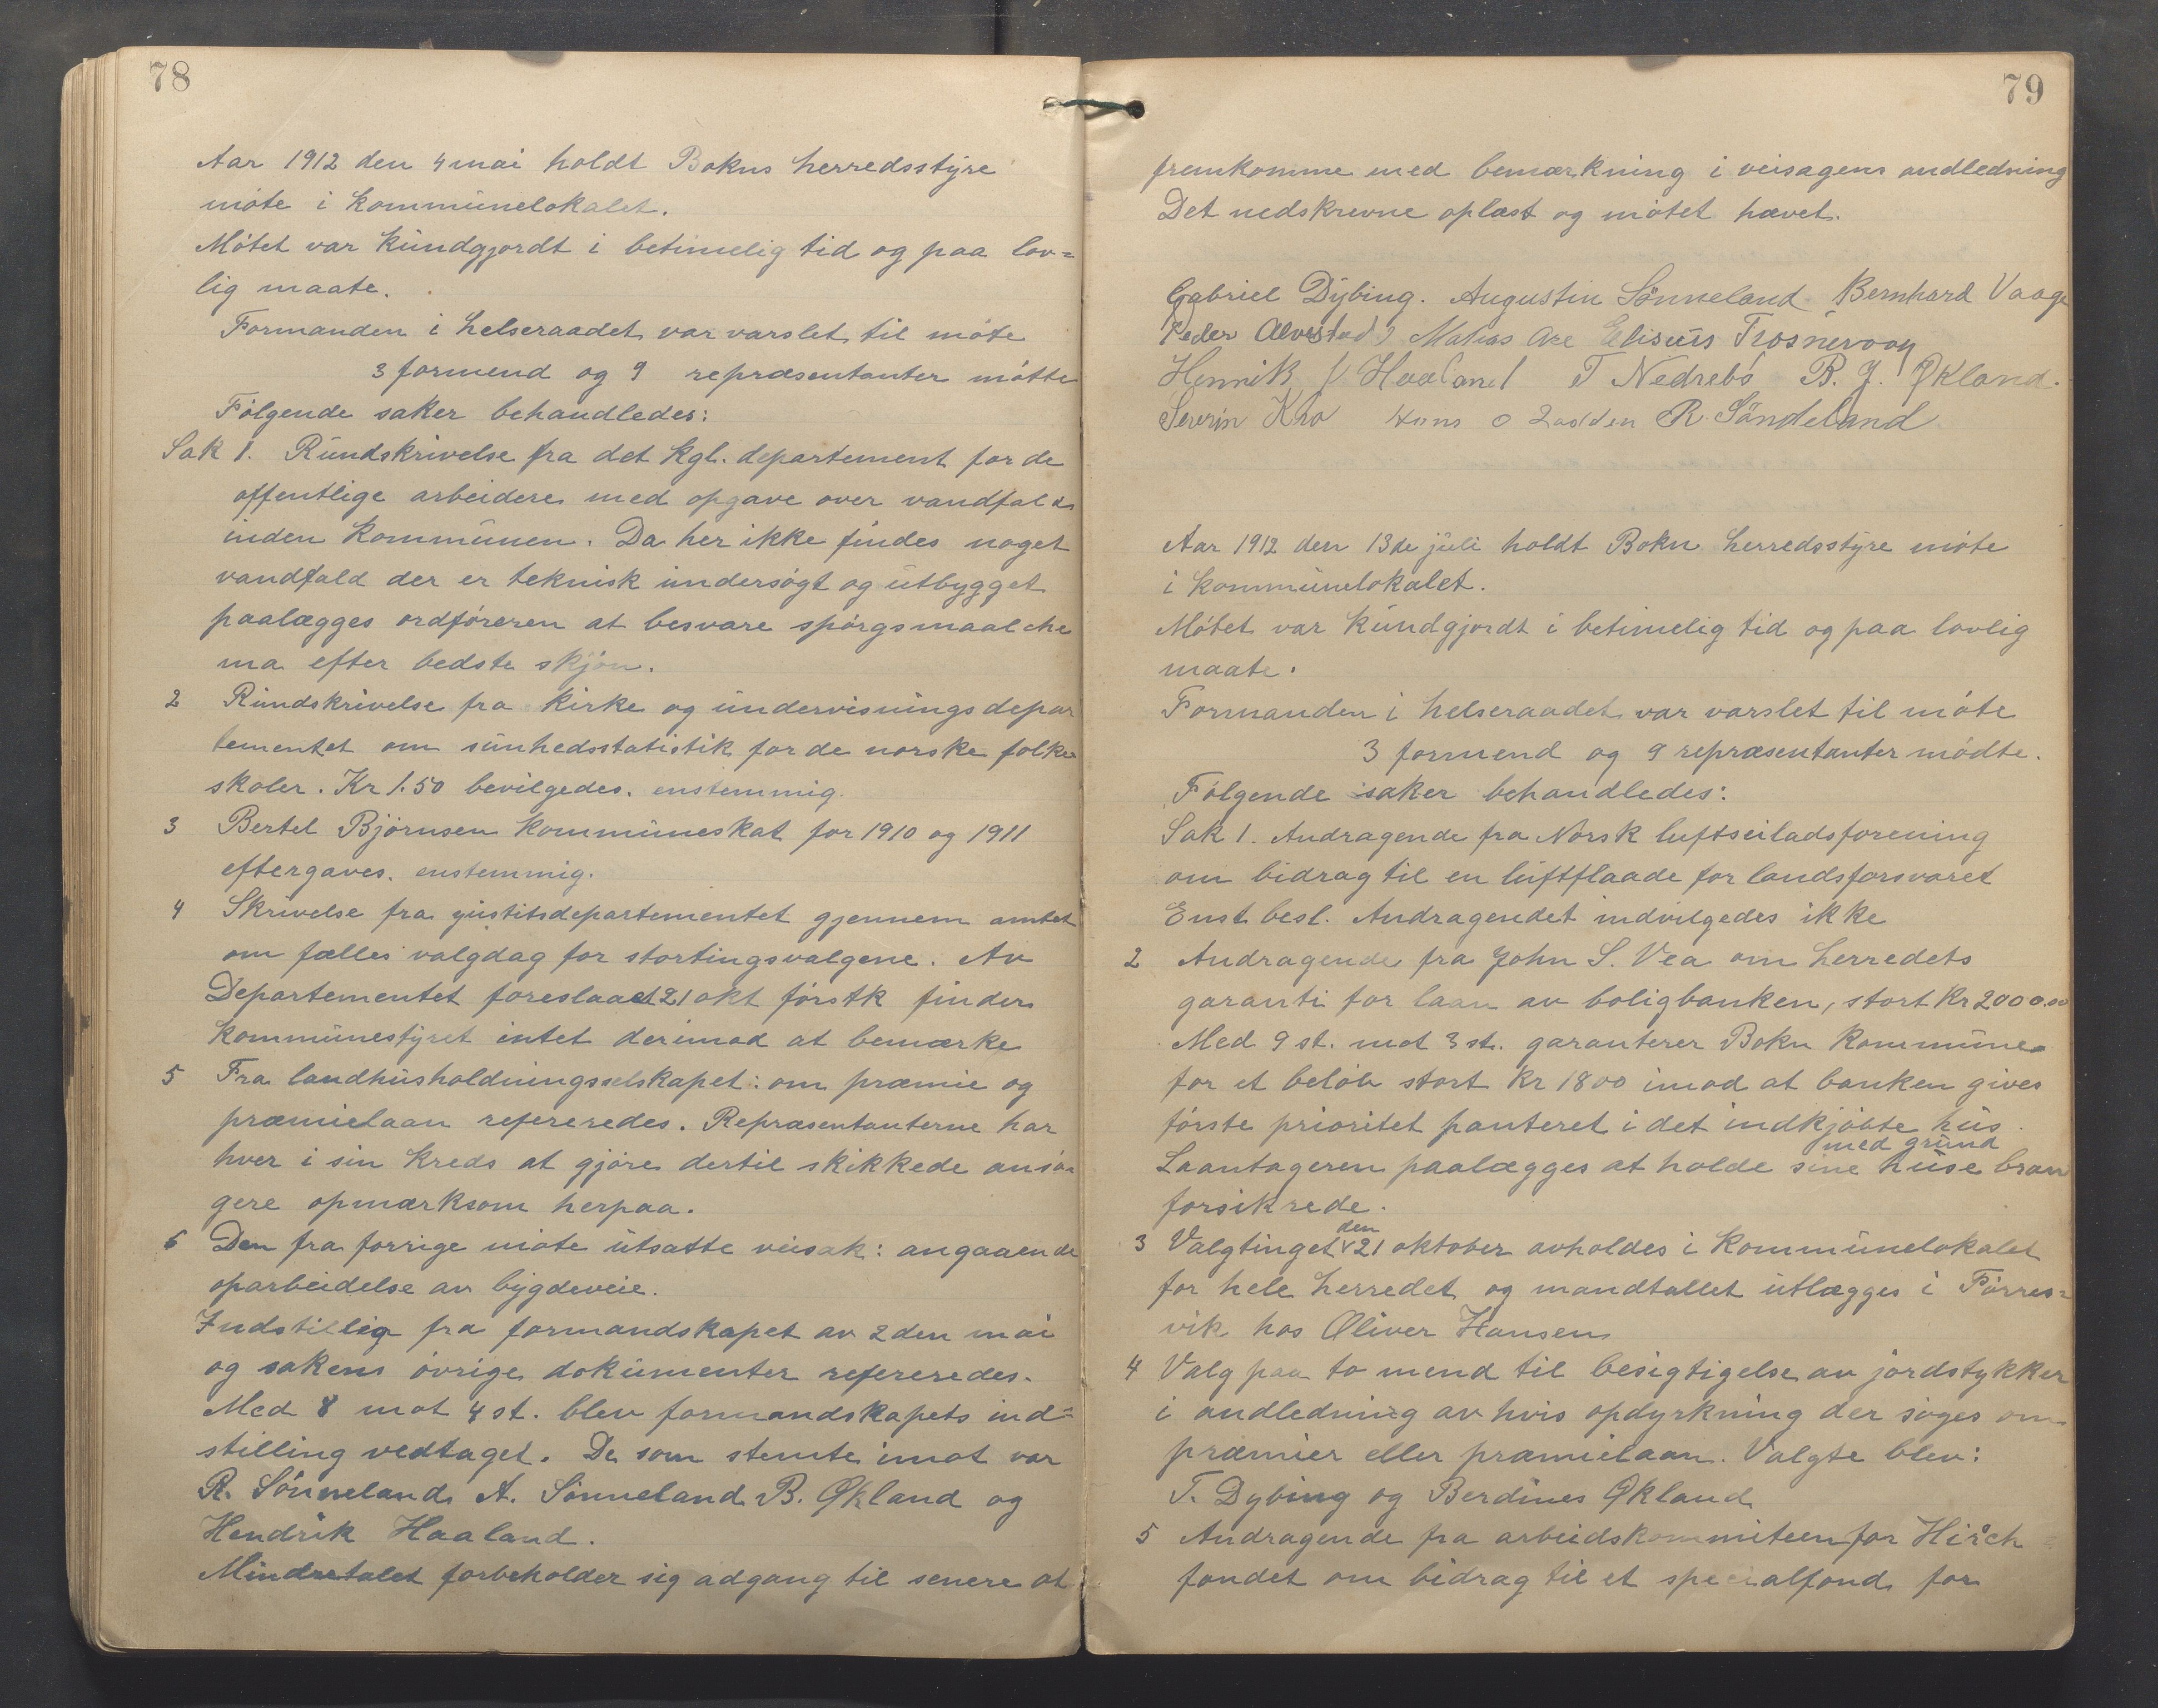 78
Aar 1912 den 4 mai holdt Bokns herredsstyre
møte i kommunelokalet.
Møtet var kundgjordt i betimelig tid og paa lov=
lig maate.
Formanden i helseraadet var varslet til møte
3 formend og 9 repræsentanter møtte
Følgende saker behandledes:
Sak 1. Rundskrivelse fra det kgl. departement for de
offentlige arbeidere med opgave over vandfald
inden kommunen. Da her ikke findes noget
vandfald der er teknisk undersøgt og utbygget
paalægges ordføreren at besvare spørgsmaalche
ma efter bedste skjøn.
2 Rundskrivelse fra kirke og undervisningsdepar
tementet om sunhedsstatistik for de norske folke
skoler. Kr 1.50 bevilgedes. enstemmig.
3 Bertel Bjørnsen kommuneskat for 1910 og 1911
eftergaves. enstemmig.
4 Skrivelse fra justitsdepartementet gjennem amtet
om fælles valgdag for stortingsvalgene. Av
Departementet foreslaaet 21 okt førstk finder
kommunestyret intet derimod at bemærke
5 Fra landhusholdningsselskapet: om præmie og
præmielaan refereredes. Repræsentanterne har
hver i sin kreds at gjøre dertil skikkede ansø=
gere opmærksom herpaa.
6 Den fra forrige møte utsatte veisak: angaaende
oparbeidelse av bygdeveie.
Indstillig fra formandskapet av 2den mai
og sakens øvrige dokumenter refereredes.
Med 8 mot 4 st. blev formandskapets ind=
stilling vedtaget. De som stemte imot var
R. Sönneland, A. Sönneland, B. Økland og
Hendrik Haaland.
Mindretalet forbeholder sig adgang til senere at
79
fremkomme med bemærkning i veisagens andledning
Det nedskrevne oplæst og møtet hævet.
Gabriel Dybing. Augustin Sönneland Bernhard Vaage
Peder Alvestad Matias Are Elisæus Trosnevaag
Henrik J Haaland T Nedrebø B. J. Økland.
Severin Kro Hans O Lodden R. Sönneland
Aar 1912 den 13de juli holdt Bokn herredsstyre møte
i kommunelokalet.
Møtet var kundgjordt i betimelig tid og paa lovlig
maate.
Formanden i helseraadet var varslet til møte
3 formend og 9 repræsentanter mødte.
Følgende saker behandledes:
Sak 1. Andragende fra Norsk luftseiladsforening
om bidrag til en luftflaade for landsforsvaret
Enst. besl. Andragendet indvilgedes ikke
2 Andragende fra John S. Vea om herredets
garanti for laan av boligbanken, stort kr 2000.00
Med 9 st. mot 3 st. garanterer Bokn kommune
for et beløb stort kr 1800 imod at banken gives
første prioritet panteret i det indkjøbte hus
med grund
Laantageren paalægges at holde sine huse bran
forsikrede.
3 Valgtinget den 21 oktober avholdes i kommunelokalet
for hele herredet og mandtallet utlægges i Førres=
vik hos Oliver Hansen
4 Valg paa to mend til besigtigelse av jordstykker
i andledning av hvis opdyrkning der søges om
præmier eller præmielaan. Valgte blev:
T. Dybing og Berdines Økland
5 Andragende fra arbeidskommiteen for Hirch
fondet om bidrag til et specialfond for